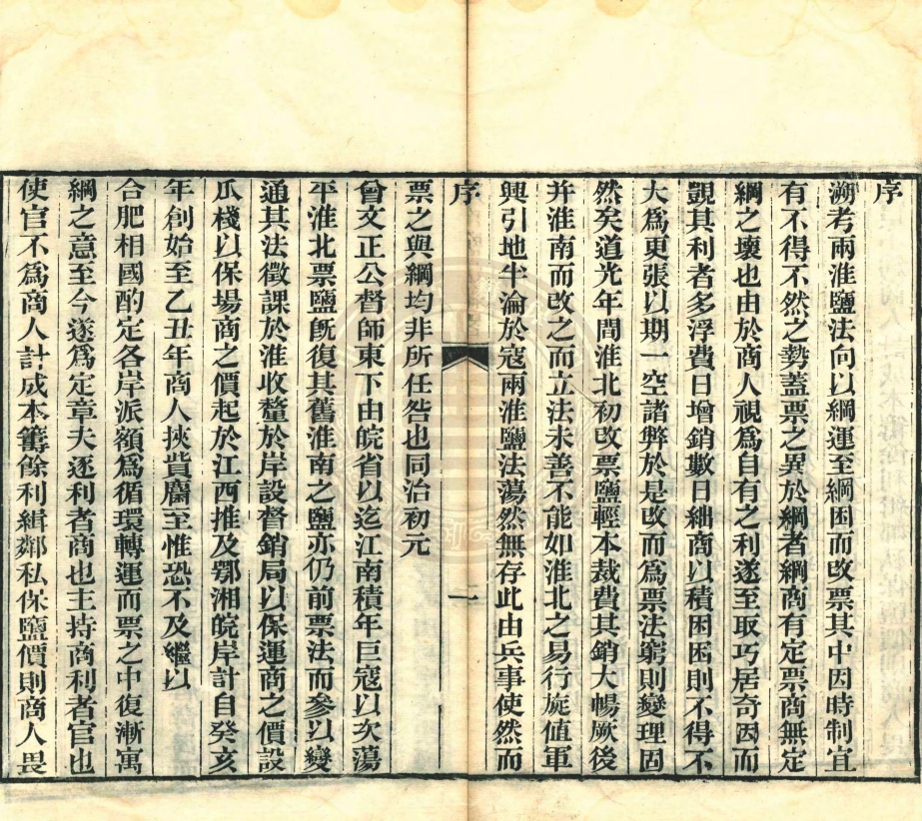 序
溯考兩淮鹽法向以綱運至綱困而改票其中因時制宜
有不得不然之勢蓋票之異於綱者綱商有定票商無定
綱之壞也由於商人視爲自有之利遂至取巧居奇因而
覬其利者多浮費日增銷數日絀商以積困困則不得不
大爲更張以期一空諸弊於是改而爲票法窮則變理固
然矣道光年間淮北初改票鹽輕本裁費其銷大暢厥後
并淮南而改之而立法未善不能如淮北之易行旋値軍
興引地半淪於寇兩淮鹽法蕩然無存此由兵事使然而
序
一
票之與綱均非所任咎也同治初元
曾文正公督師東下由皖省以迄江南積年巨寇以次蕩
平淮北票鹽旣復其舊淮南之鹽亦仍前票法而參以變
通其法徵課於淮收釐於岸設督銷局以保運商之價設
瓜棧以保場商之價起於江西推及鄂湘皖岸計自癸亥
年創始至乙丑年商人挾貲麕至惟恐不及繼以
合肥相國酌定各岸派額爲循環轉運而票之中復漸寓
綱之意至今遂爲定章夫逐利者商也主持商利者官也
使官不爲商人計成本籌餘利緝鄰私保鹽價則商人畏